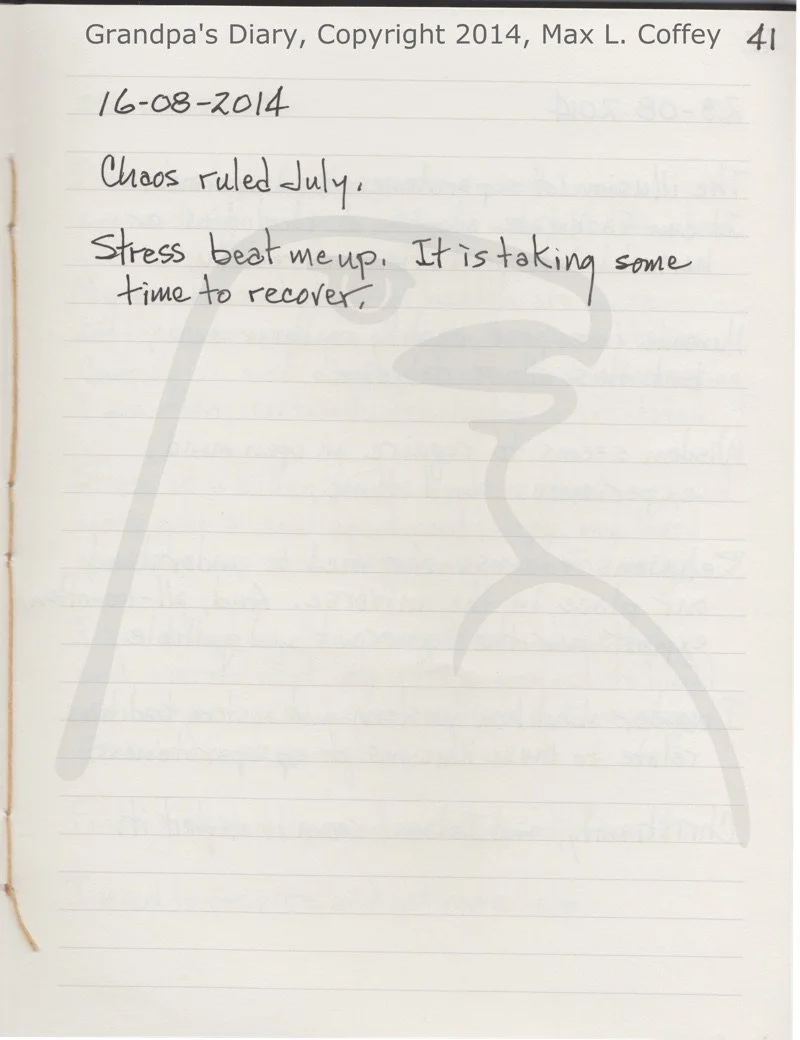 Grandpa's Diary, Copyright 2014, Max L. Coffey 41
16-08-2014
Chaos ruled July.
Stress beat me up. It is taking some
time to recover.